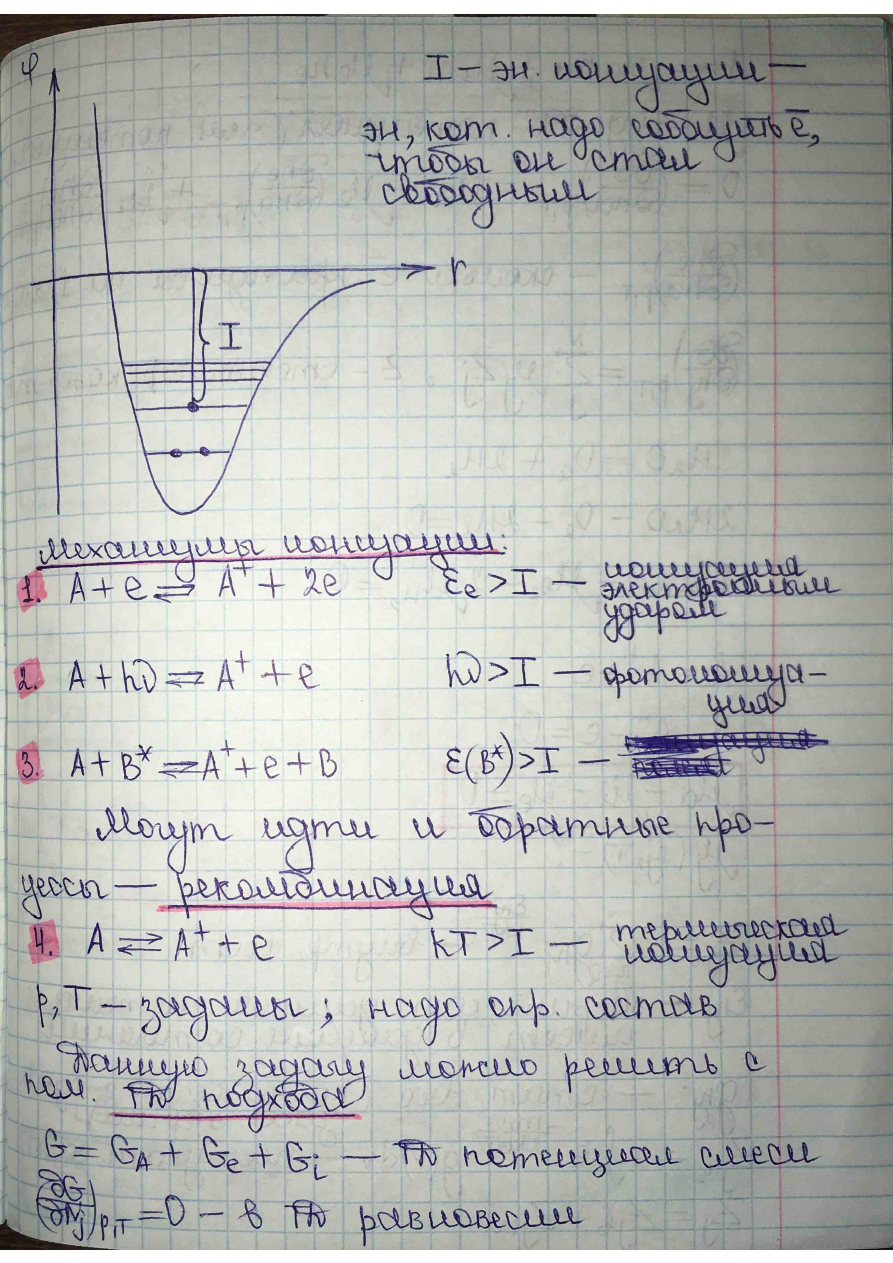 φ
I – эн. ионизации –
эн, кот. надо сообщить ē,
чтобы он стал
свободным
r
I
Механизмы ионизации:
1. A + e ⇄ A⁺ + 2e εe > I – ионизация
электронным
ударом
2. A + hν ⇄ A⁺ + e hν > I – фотоиониза-
ция
3. A + B* ⇄ A⁺ + e + B ε(B*) > I –
Могут идти и обратные про-
цессы – рекомбинация
4. A ⇄ A⁺ + e kT > I – термическая
ионизация
p, T – заданы; надо опр. состав
Данную задачу можно решить с
пом. ТД подхода
G = G_A + G_e + G_i – ТД потенциал смеси
(∂G/∂N_j)_p,T = 0 – в ТД равновесии